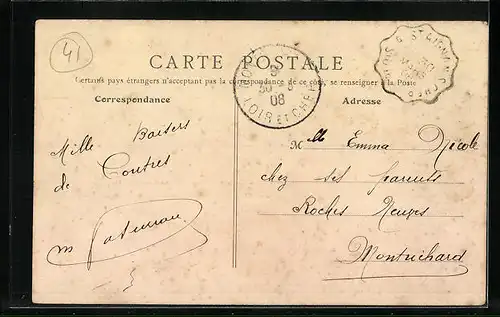 41
CARTE POSTALE
Certains pays étrangers n'acceptant pas la correspondance de ce côté, se renseigner à la Poste
Correspondance
Adresse
Mille Baisers
de Contres
Mlle Emma Nicole
chez ses parents
Roches Neuves
Montrichard
30 08
LOIR ET CHER
BLOIS A ST AIGNAN S CHER